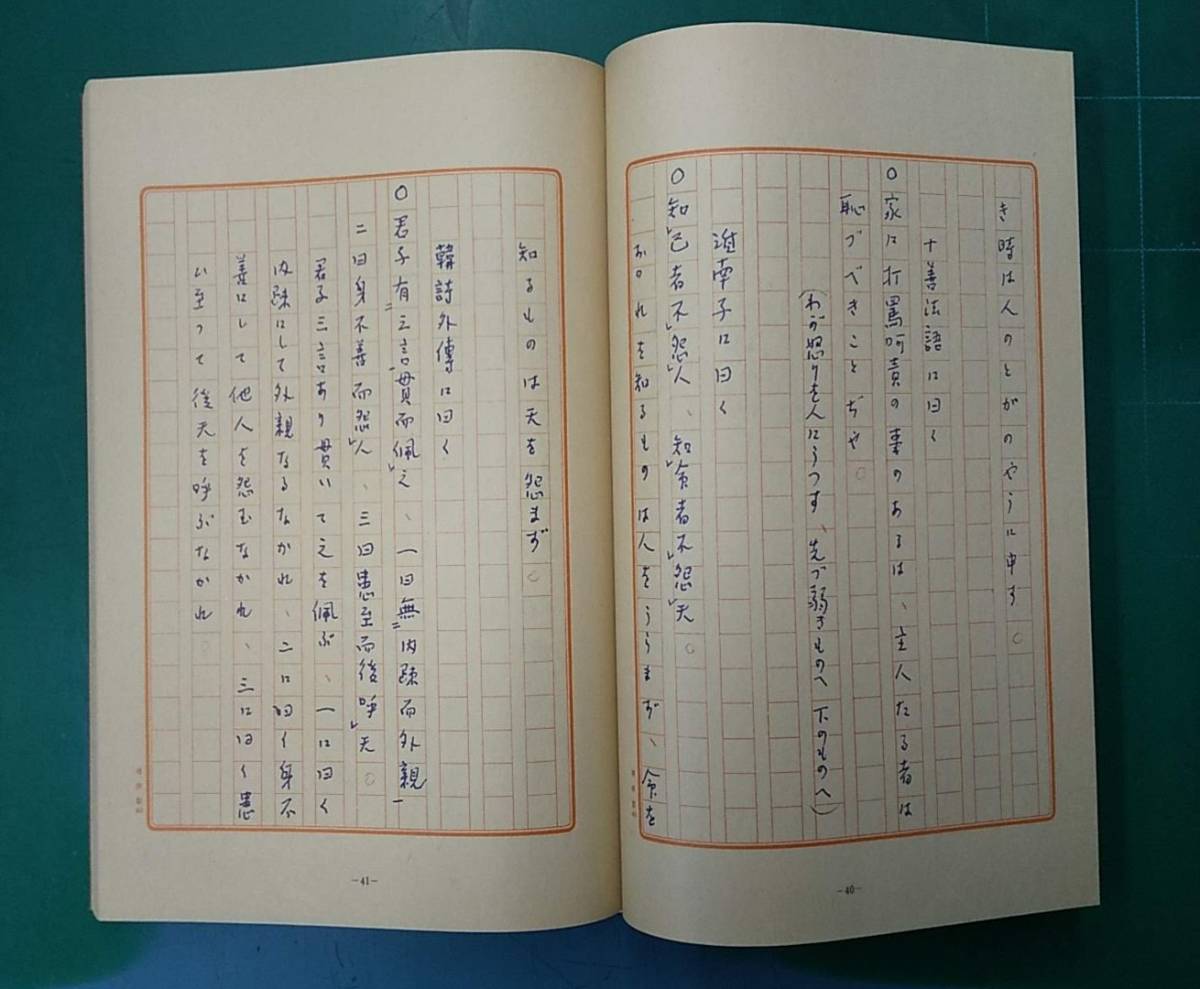 き時は人のとがのやうに申す。
十善法語に曰く
○家に打罵呵責の声のあるは、主人たる者は
恥づべきことぢや。
(わが怒りを人にうつす、先づ弱きものへ下のものへ)
淮南子に曰く
○知レ己者不レ怨レ人、知レ命者不レ怨レ天。
おのれを知るものは人をうらまず、命を
-40-
知るものは天を怨まず。
韓詩外傳に曰く
○君子有二三言一貫而佩レ之、一曰無二内疎而外親一
二曰身不善而怨レ人、三曰患至而後呼レ天。
君子三言あり貫いて之を佩ぶ、一に曰く
内疎にして外親なるなかれ、二に曰く身不
善にして他人を怨むなかれ、三に曰く患
い至って後天を呼ぶなかれ
-41-